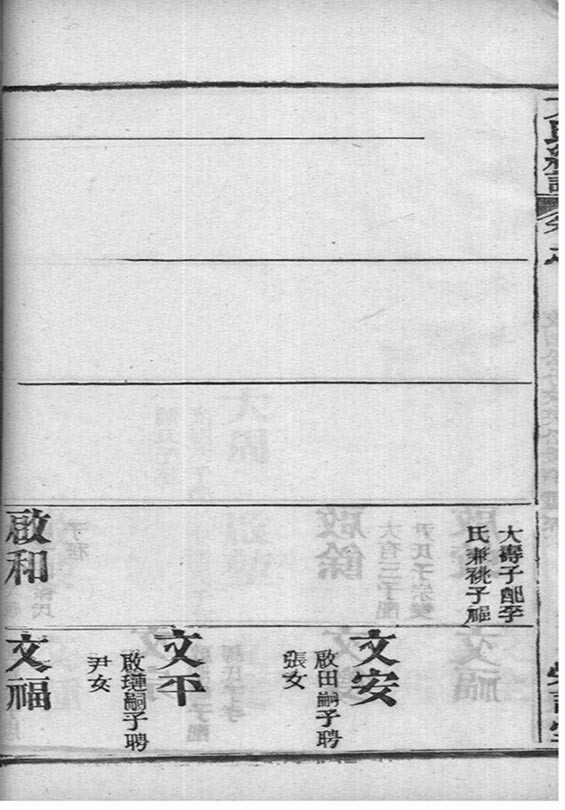 大壽子配李
氏兼祧子福
啟和
文安
啟田嗣子聘
張女
文平
啟璉嗣子聘
尹女
文福